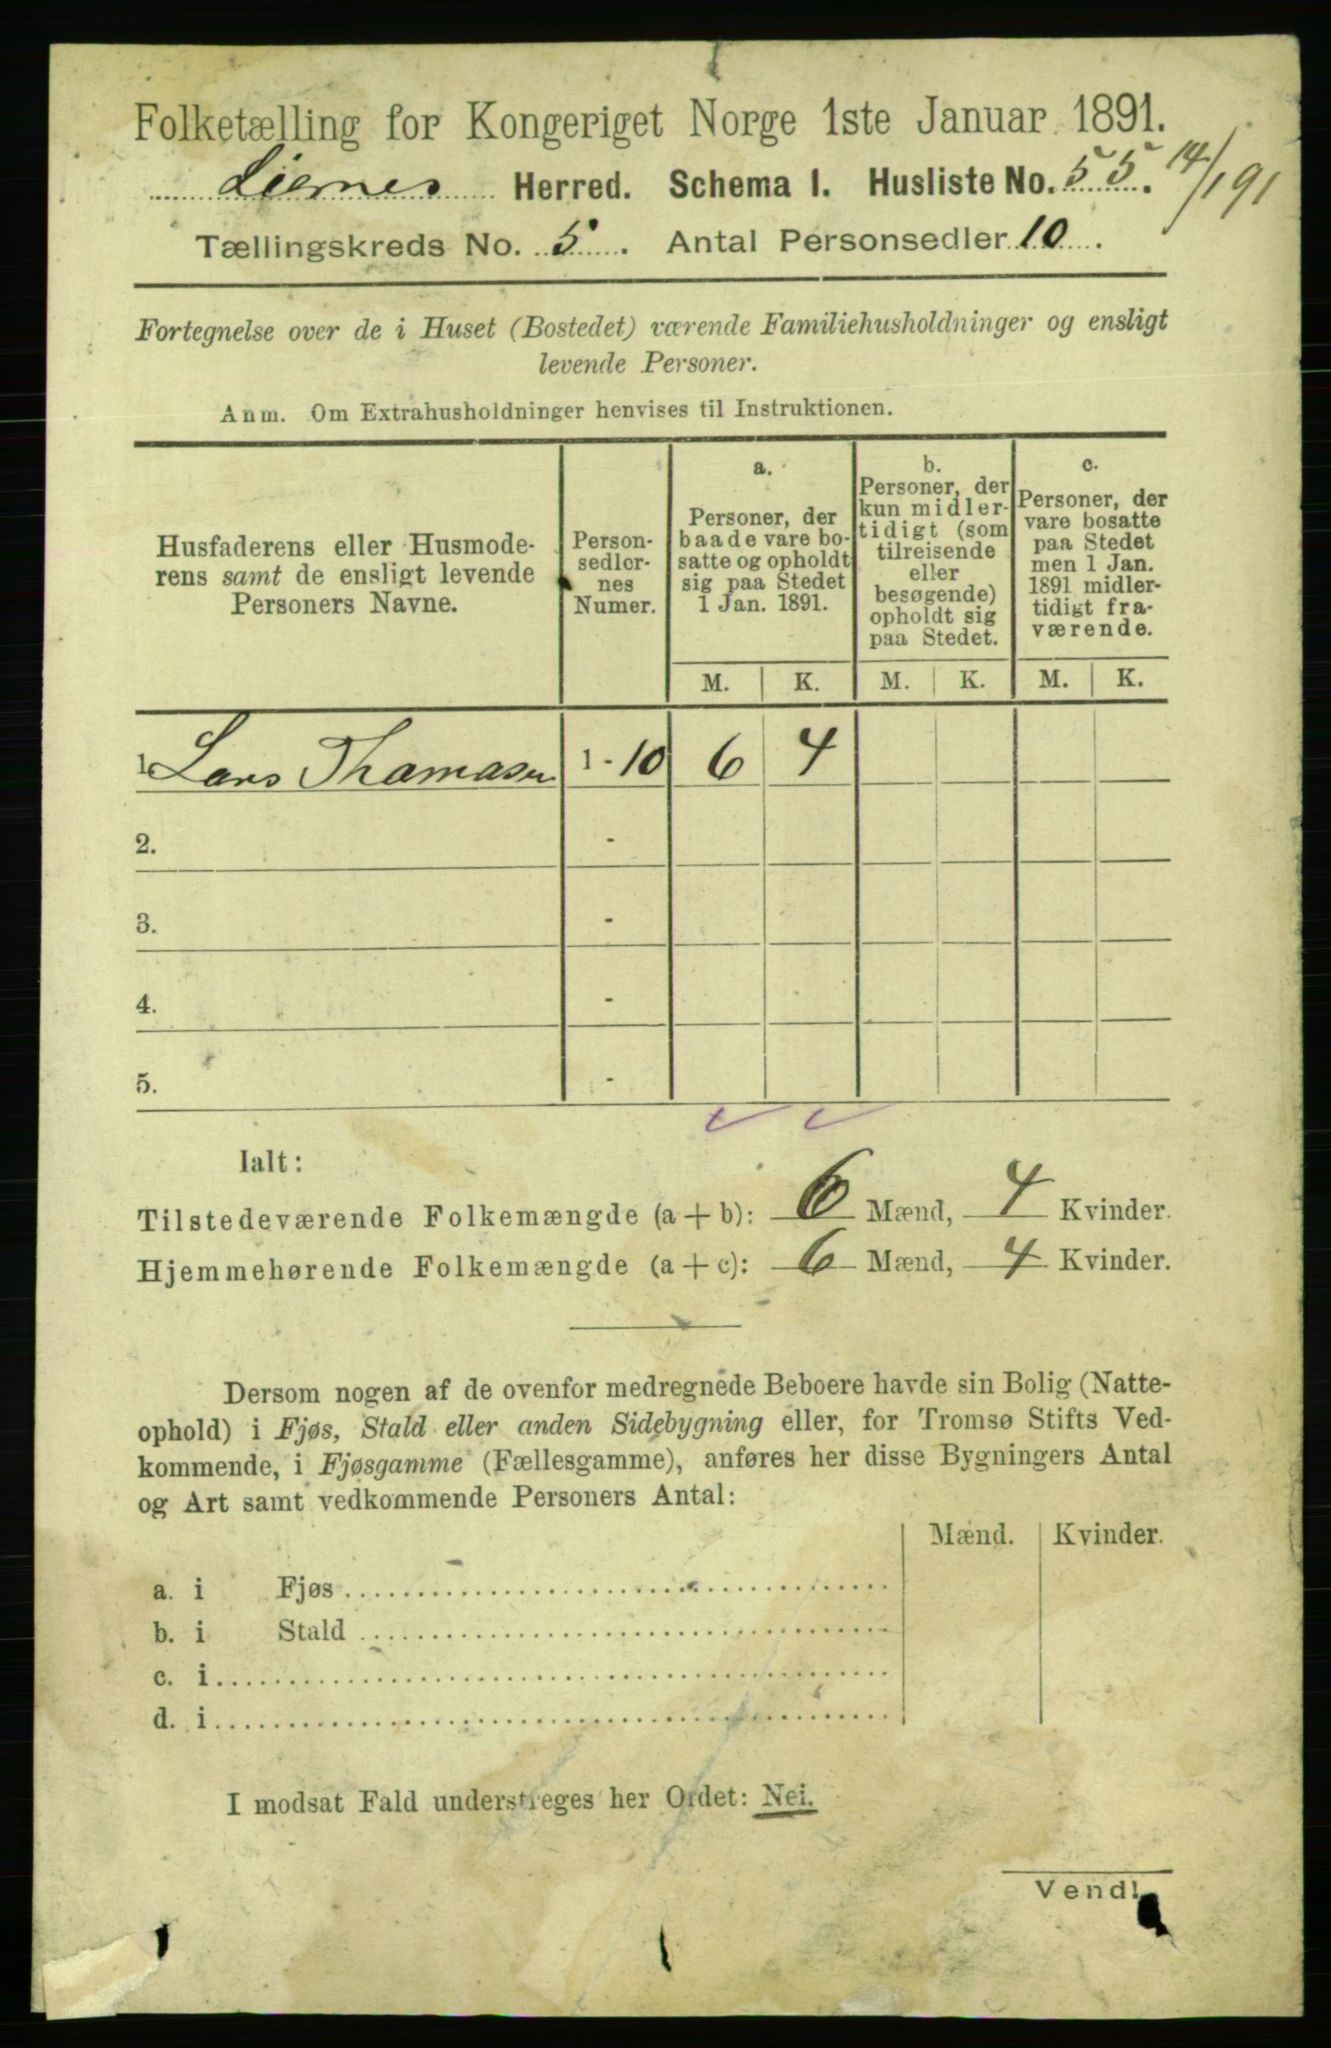 Folketælling for Kongeriget Norge 1ste Januar 1891.
Liernes Herred. Schema I. Husliste No. 55. 14/1 91
Tællingskreds No. 5. Antal Personsedler 10.
Fortegnelse over de i Huset (Bostedet) værende Familiehusholdninger og ensligt
levende Personer.
Anm. Om Extrahusholdninger henvises til Instruktionen.
Husfaderens eller Husmode-
rens samt de ensligt levende
Personers Navne.
Person-
sedler-
nes
Numer.
a.
Personer, der
baade vare bo-
satte og opholdt
sig paa Stedet
1 Jan. 1891.
b.
Personer, der
kun midler-
tidigt (som
tilreisende
eller
besøgende)
opholdt sig
paa Stedet.
c.
Personer, der
vare bosatte
paa Stedet
men 1 Jan.
1891 midler-
tidigt fra-
værende.
M. K. M. K. M. K.
1. Lars Thamasen 1 - 10 6 4
2. -
3. -
4. -
5. -
Ialt:
Tilstedeværende Folkemængde (a + b): 6 Mænd, 4 Kvinder.
Hjemmehørende Folkemængde (a + c): 6 Mænd, 4 Kvinder.
Dersom nogen af de ovenfor medregnede Beboere havde sin Bolig (Natte-
ophold) i Fjøs, Stald eller anden Sidebygning eller, for Tromsø Stifts Ved-
kommende, i Fjøsgamme (Fællesgamme), anføres her disse Bygningers Antal
og Art samt vedkommende Personers Antal:
Mænd. Kvinder.
a. i Fjøs
b. i Stald
c. i
d. i
I modsat Fald understreges her Ordet: Nei.
Vend!